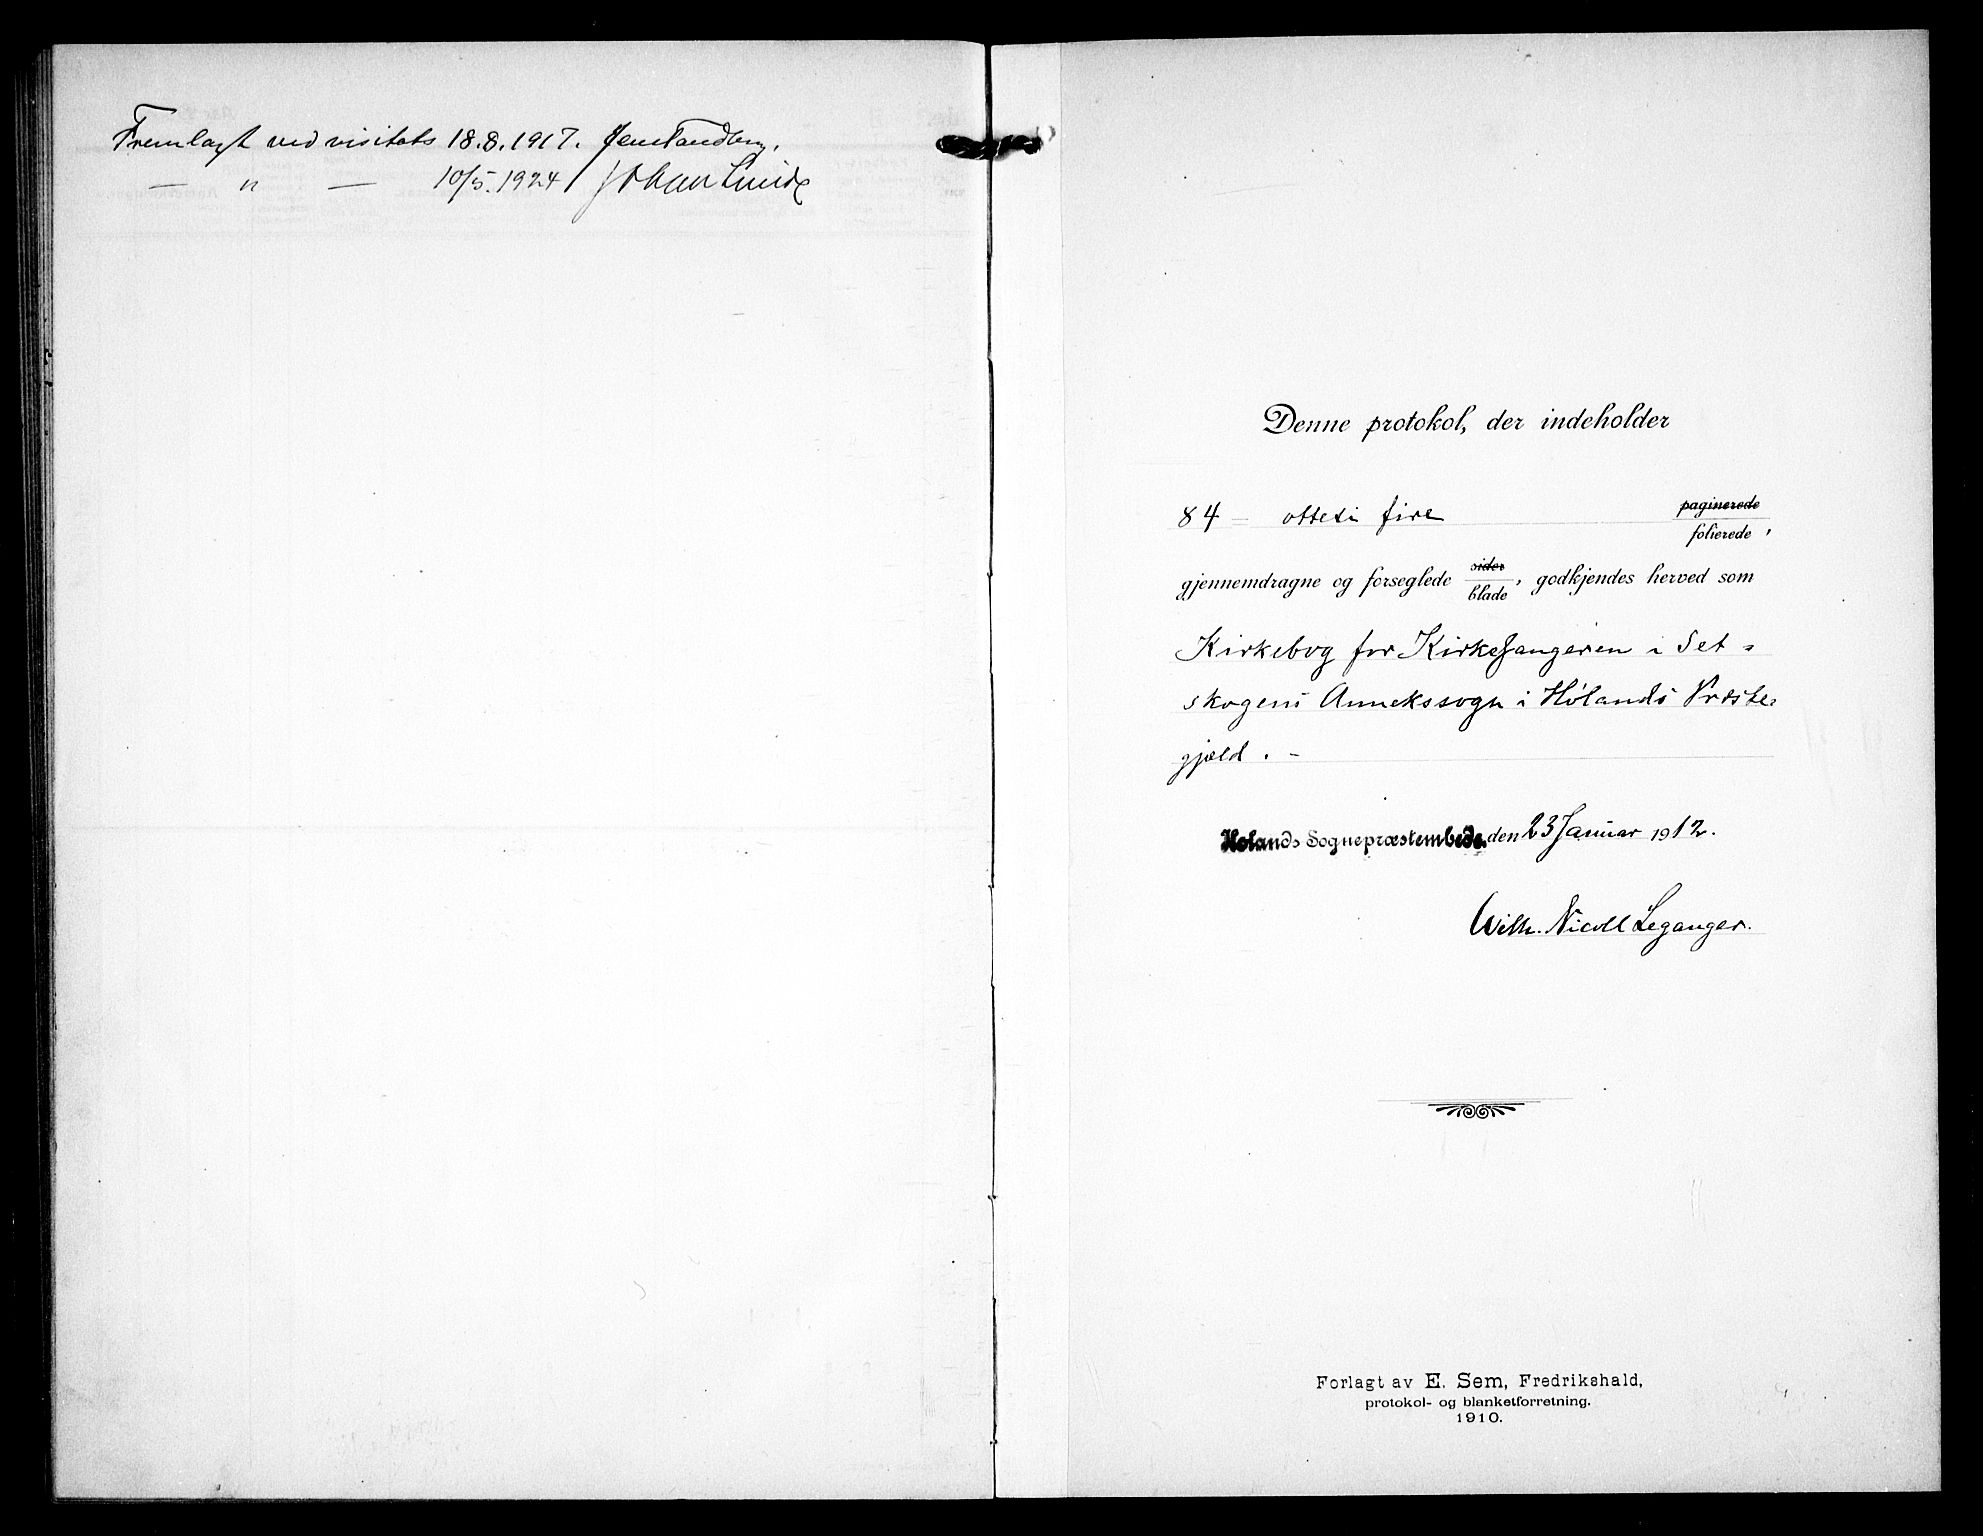 Fremlagt ved visitats 18.8.1917. Jens Tandberg.
— " — 10/5.1924 Johan Lunde
Denne protokol, der indeholder
84 – otteti fire paginerede
folierede,
gjennemdragne og forseglede sider
blade, godkjendes herved som
Kirkebog for Kirkesangeren i Set-
skogens Annekssogn i Hølands Præste-
gjæld. –
Hølands Sognepræstembede. den 23 Januar 1912.
Wilh. Nicoll Leganger.
Forlagt av E. Sem, Fredrikshald,
protokol- og blanketforretning.
1910.